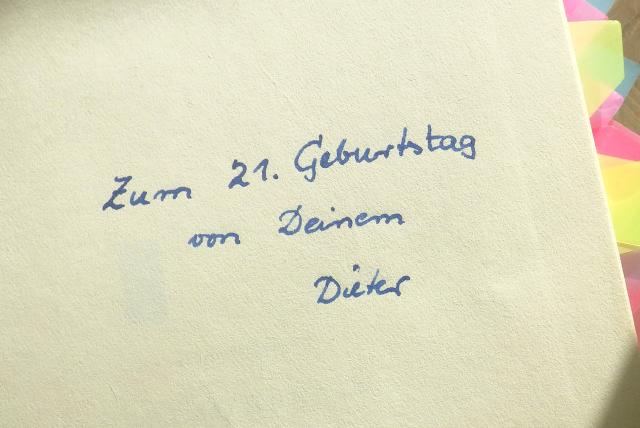 Zum 21. Geburtstag
von Deinem
Dieter